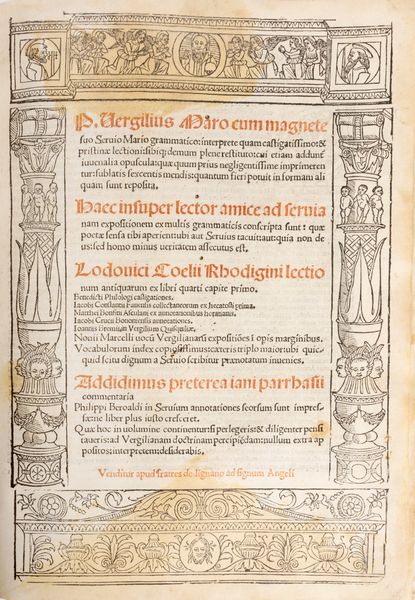 P. Uergilius Maro cum magnete
suo Seruio Mario grammatico: interprete quam castigatissimo: &
pristinæ lectioni: sibiq; demum plene restituto: cui etiam addunt̃
iuuenalia opuscula: quæ quum prius negligentissime imprimeren
tur: sublatis sexcentis mendis: quantum fieri potuit in formam ali
quam sunt reposita.
Haec insuper lector amice ad seruia
nam expositionem ex multis grammaticis conscripta sunt: quæ
poetæ sensa tibi aperient: ubi aut Seruius tacuit: aut: quia non de
us: sed homo minus ueritatem assecutus est.
Lodouici Coelii Rhodigini lectio
num antiquarum ex libri quarti capite primo.
Benedicti Philologi castigationes.
Iacobi Constantii Fanensis collectaneorum ex hecatosti prima.
Matthei Bonfini Asculani ex annotationibus horatianis.
Iacobi Crucii Bononiensis annotationes.
Ioannis Bremii in Vergilium Quisquiliæ.
Nonii Marcelli uocũ Vergilianarũ expositiões ĩ opis marginibus.
Vocabulorum index copiosissimus: cæteris triplo maior: ubi quic
quid scitu dignum a Seruio scribitur prænotatum inuenies.
Addidimus preterea iani parrhasii
commentaria
Philippi Beroaldi in Seruium annotationes seorsum sunt impres
sæ: ne liber plus iusto cresceret.
Quæ hoc in uolumine continentur si perlegeris: & diligenter pensi
taueris: ad Vergilianam doctrinam percipiẽdam: nullum extra ap
positos: interpretem: desiderabis.
Venditur apud fratres de lignano ad signum Angeli